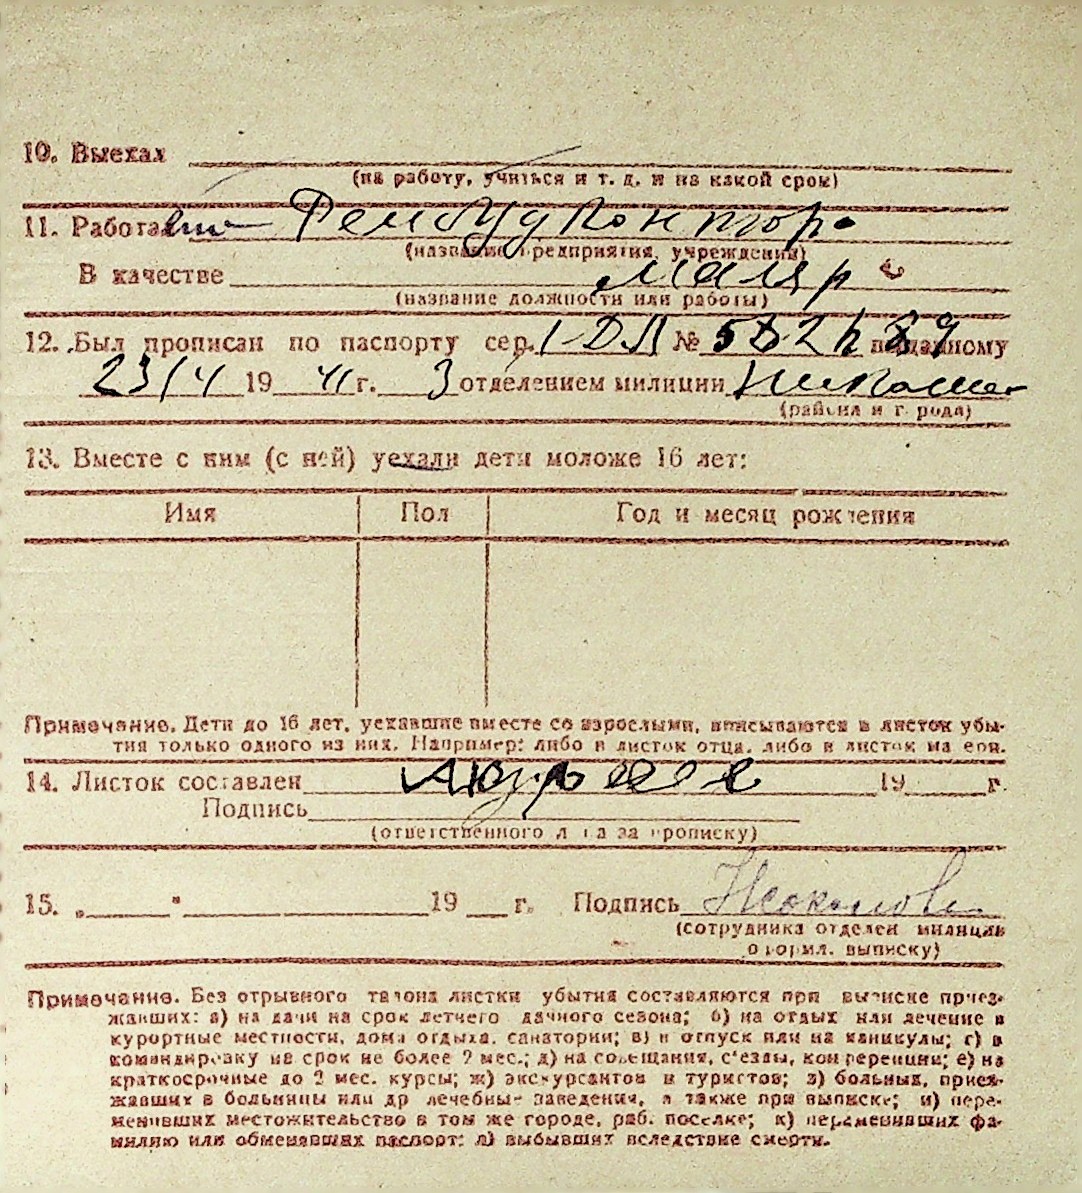 10. Выехал
(на работу, учиться и т. д. и на какой срок)
11. Работал Рембудконтора
(название предприятия, учреждения)
В качестве маляр
(название должности или работы)
12. Был прописан по паспорту сер. № выданному
23/4 1941 г. 3 отделением милиции
(района и города)
13. Вместе с ним (с ней) уехали дети моложе 16 лет:
Имя Пол Год и месяц рождения
Примечание. Дети до 16 лет, уехавшие вместе со взрослыми, вписываются в листок убы-
тия только одного из них. Например: либо в листок отца, либо в листок матери.
14. Листок составлен 19 г.
Подпись
(ответственного лица за прописку)
15. „ " 19 г. Подпись
(сотрудника отделен. милиции
оформ. выписку)
Примечание. Без отрывного талона листки убытия составляются при выписке приез-
жавших: а) на дачи на срок летнего дачного сезона; б) на отдых или лечение в
курортные местности, дома отдыха, санатории; в) в отпуск или на каникулы; г) в
командировку на срок не более 2 мес.; д) на совещания, с'езды, конференции; е) на
краткосрочные до 2 мес. курсы; ж) экскурсантов и туристов; з) больных, приез-
жавших в больницы или др лечебные заведения, а также при выписке; и) пере-
менивших местожительство в том же городе, раб. поселке; к) переменивших фа-
милию или обменявших паспорт; л) выбывших вследствие смерти.